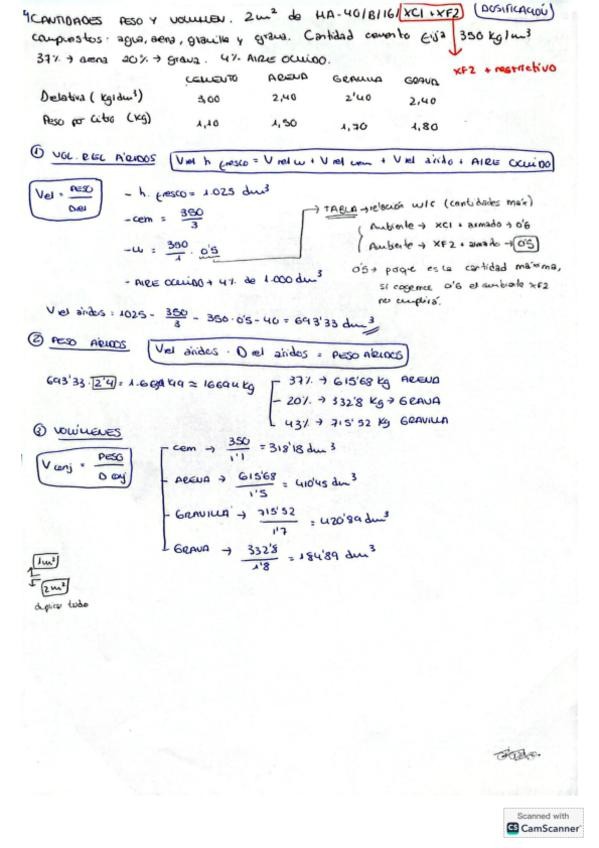 4 CANTIDADES PESO Y VOLUMEN. 2m² de HA-40/B/16/ XC1 + XF2 (DOSIFICACIÓN)
compuestos: agua, arena, gravilla y grava. Cantidad cemento fija 350 kg/m³
37% → arena 20% → grava. 4% AIRE OCLUIDO.
XF2 + restrictivo
CEMENTO ARENA GRAVILLA GRAVA
Drelativa (kg/dm³) 3,00 2,40 2'40 2,40
Peso por litro (kg) 1,10 1,50 1,70 1,80
① VOL. REL ÁRIDOS Vrel h fresco = Vrel w + Vrel cem + Vrel árido + AIRE OCLUIDO
Vrel = PESO / Drel
- h. fresco = 1.025 dm³
- cem = 350 / 3
- w = 350 / 1 · 0'5
- AIRE OCLUIDO → 4% de 1.000 dm³
→ TABLA → relación w/c (cantidades máx)
Ambiente → XC1 + armado → 0'6
Ambiente → XF2 + armado → 0'5
0'5 → porque es la cantidad máxima,
si cogemos 0'6 el ambiente XF2
no cumplirá.
Vrel áridos = 1025 - 350/3 - 350·0'5 - 40 = 693'33 dm³
② PESO ÁRIDOS Vrel áridos · Drel áridos = PESO ÁRIDOS
693'33 · 2'4 = 1.663'99 ≈ 1664 kg
37% → 615'68 kg ARENA
20% → 332'8 kg → GRAVA
43% → 715'52 kg GRAVILLA
③ VOLÚMENES
V conj = PESO / D conj
cem → 350 / 1'1 = 318'18 dm³
ARENA → 615'68 / 1'5 = 410'45 dm³
GRAVILLA → 715'52 / 1'7 = 420'89 dm³
GRAVA → 332'8 / 1'8 = 184'89 dm³
1m²
2m²
duplicar todo
Scanned with
CS CamScanner